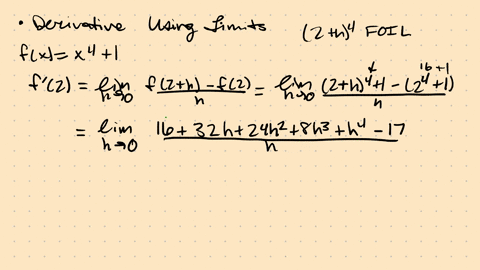 • Derivative Using Limits (2+h)⁴ FOIL
f(x) = x⁴ + 1
f'(2) = lim h→0 f(2+h) - f(2) / h = lim h→0 (2+h)⁴ + 1 - (2⁴ + 1) / h
16 + 1
= lim h→0 16 + 32h + 24h² + 8h³ + h⁴ - 17 / h